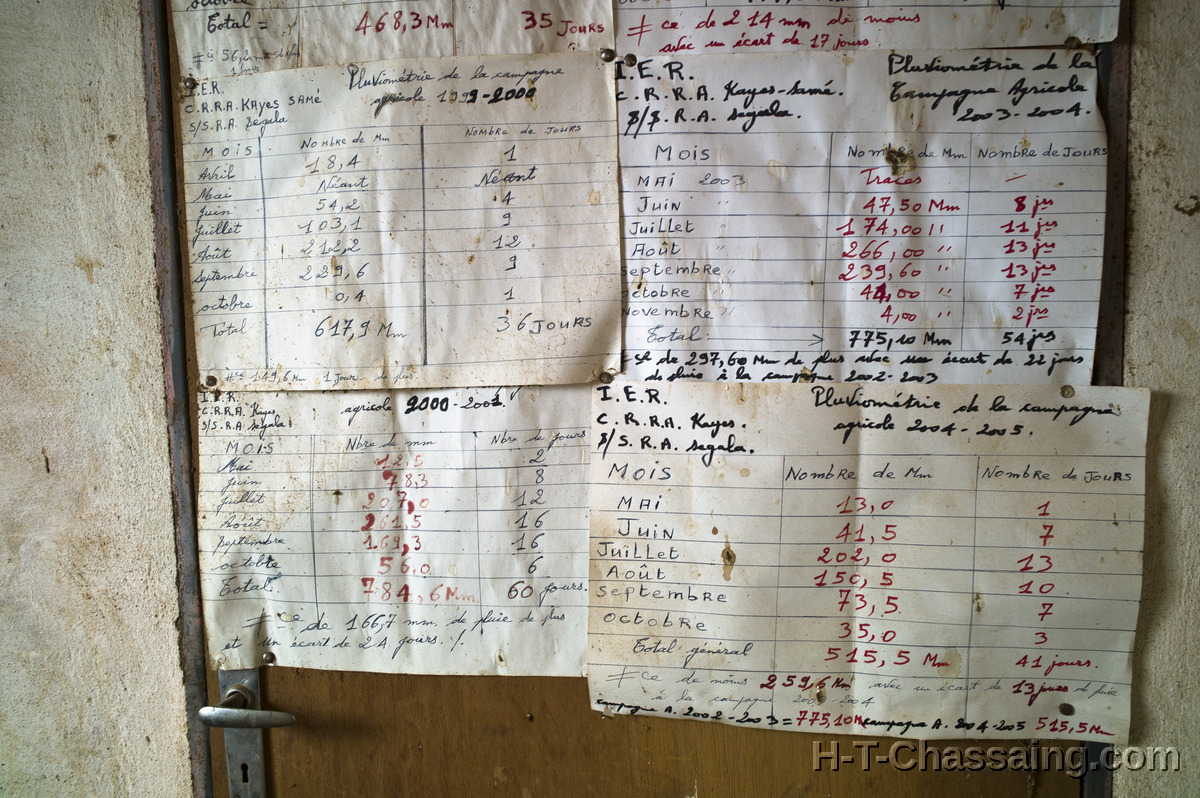 octobre
Total = 468,3 Mm 35 Jours
≠ ce 56,
≠ ce de 214 mm de moins
avec un écart de 17 jours
I.E.R. Pluviométrie de la campagne
C.R.R.A. KAYES SAMÉ agricole 1999-2000
S/S.R.A. Segala
MOIS Nombre de Mm Nombre de Jours
Avril 18,4 1
Mai Néant Néant
Juin 54,2 4
Juillet 103,1 9
Août 212,2 12
Septembre 229,6 9
octobre 0,4 1
Total 617,9 Mm 36 Jours
≠ ce 149,6 Mm 1 Jour de plus
I.E.R. Pluviométrie de la
C.R.R.A. Kayes-Samé. Campagne Agricole
S/S.R.A. Segala. 2003-2004.
Mois Nombre de Mm Nombre de Jours
MAI 2003 Traces –
Juin " 47,50 Mm 8 jrs
Juillet " 174,00 " 11 jrs
Août " 266,00 " 13 jrs
Septembre " 239,60 " 13 jrs
octobre " 44,00 " 7 jrs
Novembre " 4,00 " 2 jrs
Total: > 775,10 Mm 54 jrs
de 297,60 Mm de plus avec un écart de 22 jours
de pluie à la campagne 2002-2003
I.E.R.
C.R.R.A. Kayes. agricole 2000-2001.
S/S.R.A. Segala
MOIS Nbre de mm Nbre de jours
Mai 12,5 2
Juin 78,3 8
Juillet 207,0 12
Août 261,5 16
Septembre 169,3 16
octobre 56,0 6
Total 784,6 Mm 60 jours.
≠ ce de 166,7 mm de pluie de plus
et un écart de 24 jours ./.
I.E.R. Pluviométrie de la campagne
C.R.R.A. Kayes. agricole 2004-2005.
S/S.R.A. Segala.
Mois Nombre de Mm Nombre de Jours
MAI 13,0 1
Juin 41,5 7
Juillet 202,0 13
Août 150,5 10
Septembre 73,5 7
octobre 35,0 3
Total général 515,5 Mm 41 jours.
≠ ce de moins 259,6 Mm avec un écart de 13 jours de pluie
à la campagne 2003 2004
Campagne A. 2002-2003 = 775,10 M campagne A. 2004-2005 515,5 Mm
H-T-Chassaing.com